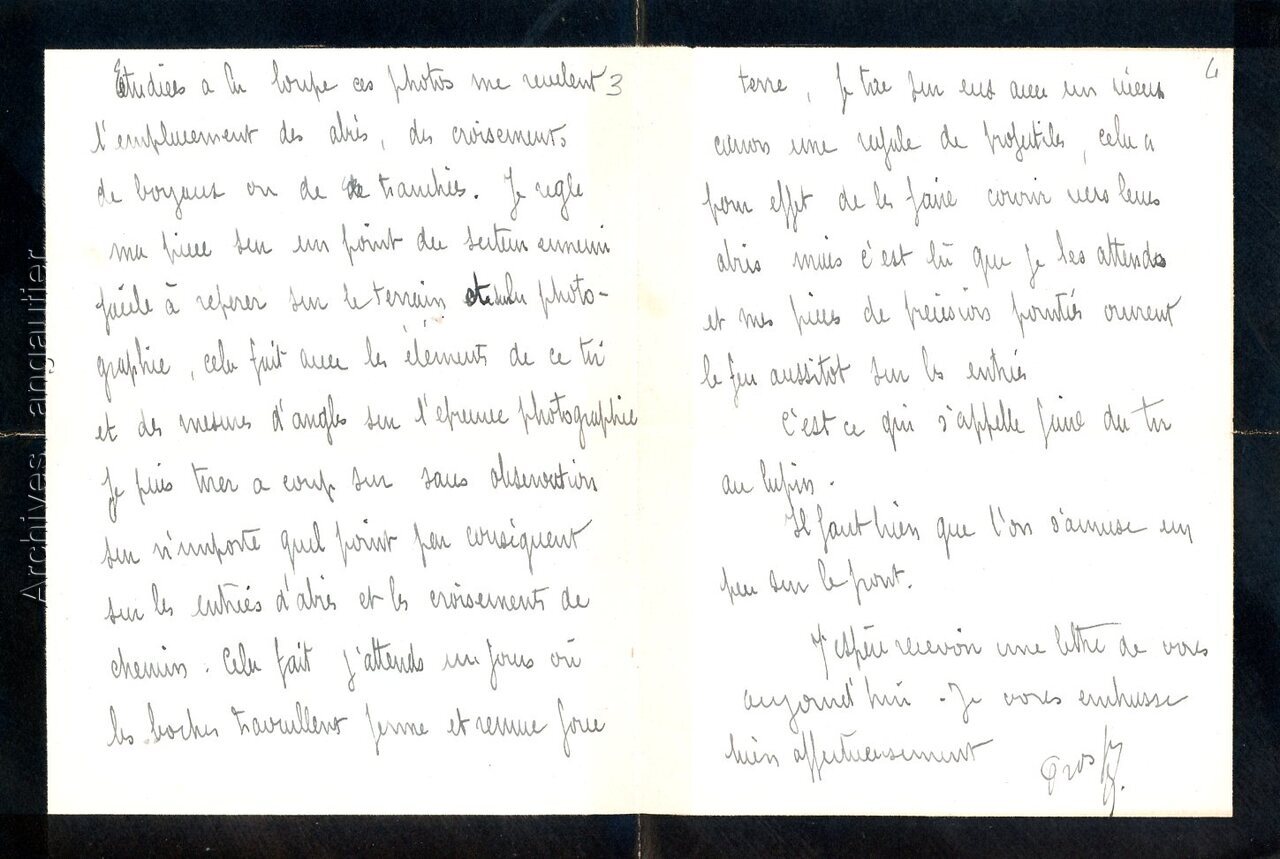 3
Etudiées a la loupe ces photos me revelent
l'emplacement des abris, des croisements
de boyaux ou de tranchées. Je regle
ma piece sur un point du secteur ennemi
facile à reperer sur le terrain et sur la photo-
graphie, cela fait avec les éléments de ce tir
et des mesures d'angles sur l'epreuve photographie
Je puis tirer a coup sur sans observation
sur n'importe quel point par consequent
sur les entrées d'abris et les croisements de
chemins. Cela fait j'attends un jour où
les boches travaillent ferme et remue
4
terre, Je tire sur eux avec un vieux
canon une rafale de projectiles, cela a
pour effet de les faire courir vers leurs
abris mais c'est là que je les attends
et mes pieces de precision pointées ouvrent
le feu aussitot sur les entrées
C'est ce qui s'appelle faire du tir
au lapin.
Il faut bien que l'on s'amuse un
peu sur le front.
J'espère recevoir une lettre de vous
aujourd'hui. Je vous embrasse
bien affectueusement
Archives angautier